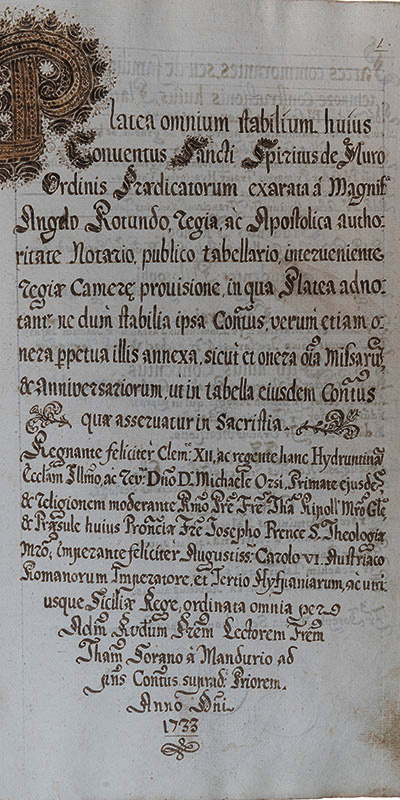 1
Platea omnium stabilium huius
Conventus Sancti Spiritus de Muro
Ordinis Prædicatorum exarata á Magnif.
Angelo Rotundo, regia, àc Apostolica autho-
ritate Notario, publico tabellario, interveniente
regiæ Camerę provisione, in qua Platea adno-
tant.r ne dum stabilia ipsa Con.tus, verum etiam o-
nera ꝑpetua illis annexa, sicut et onera oĩa Missarũ,
& Anniversariorum, ut in tabella eiusdem Con.tus
quæ asservatur in Sacristia.
Regnante feliciter Clem: XII, ac regente hanc Hydruntinã
Ecclam Illmo, ac Rev: Dño D. Michaele Orsi, Primate eiusdẽ,
& religionem moderante Rmo Pre Fre Thã Ripoll Mro Gle,
& Præsule huius Provciæ Fre Josepho Prence S. Theologiæ
Mro, imperante feliciter Augustiss: Carolo VI. Austriaco
Romanorum Imperatore, et Tertio Hyspaniarum, ac utri-
usque Siciliæ Rege, ordinata omnia per
Adm Rvdum Prem Lectorem Frem
Tham Sorano à Mandurio ad
Con.tus suprad: Priorem.
Anno Dñi
1733